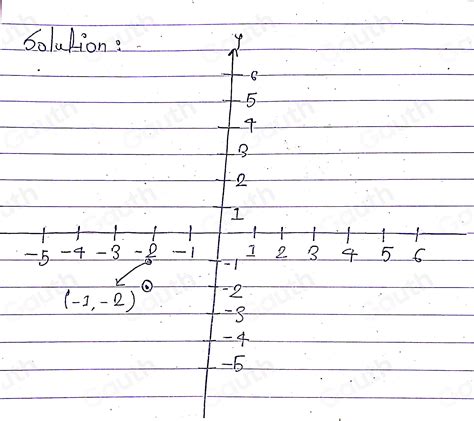 Solution:
y
6
5
4
3
2
1
-5 -4 -3 -2 -1 1 2 3 4 5 6
-1
(-1,-2)
-2
-3
-4
-5